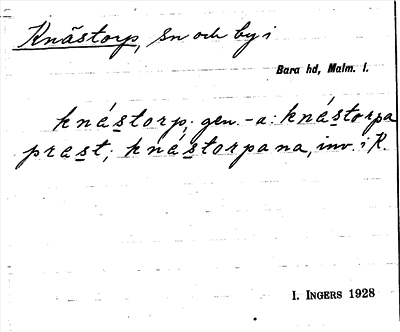 Knästorp, sn och by i
Bara hd, Malm. l.
knástorp; gen. -a: knástorpa
prast; knástorpana, inv. i K.
I. INGERS 1928